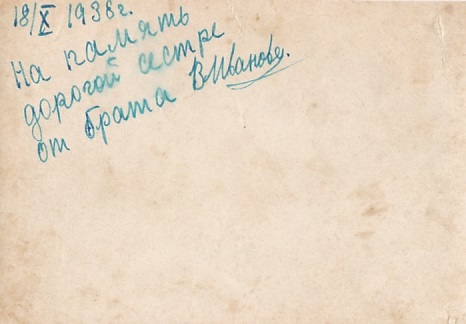 18/X 1938г.
На память
дорогой сестре
от брата В Иванова.